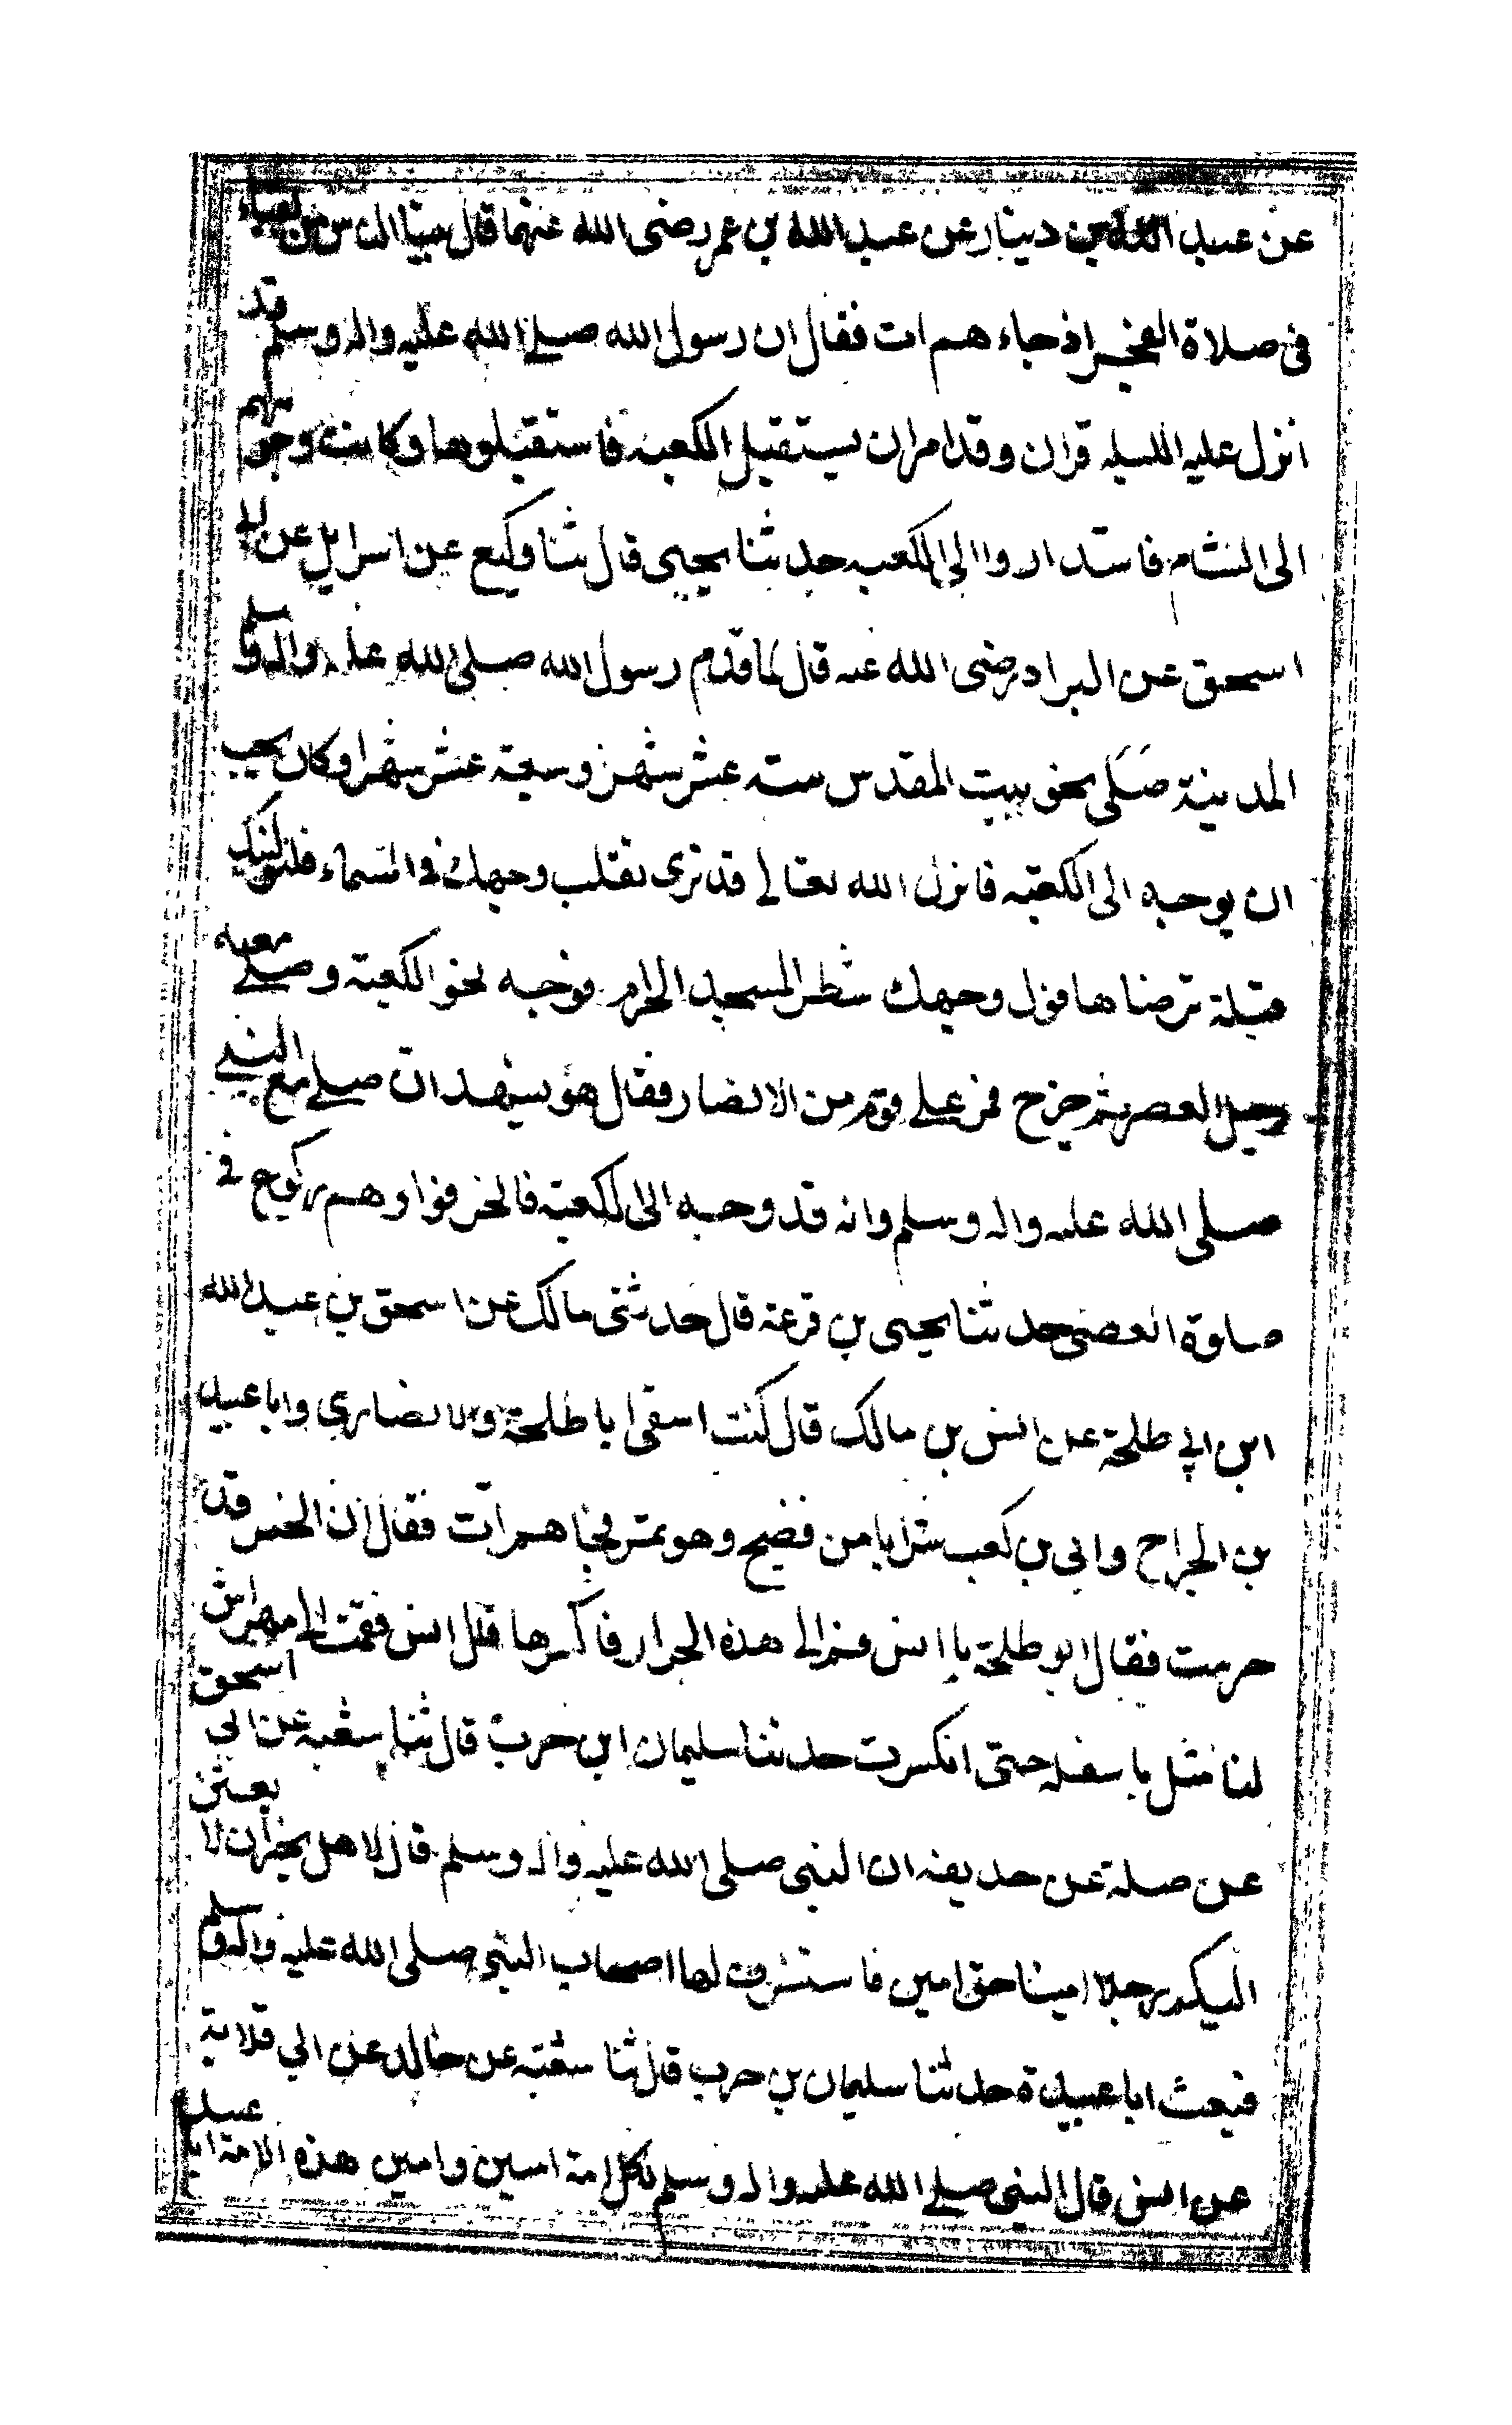 عن عبد الله بن دينار عن عبد الله بن عمر رضى الله عنهما قال بينا الناس من بقباء
فى صلاة الفجر اذ جاء هم ات فقال ان رسول الله صلى الله عليه واله وسلم قد
انزل عليه الليله قران وقد امر ان يستقبل الكعبه فاستقبلوها وكانت وجوههم
الى الشام فاستداروا الى الكعبه حدثنا يحيى قال ثنا وكيع عن اسرايل عن ابى
اسحق عن البراد رضى الله عنه قال لما قدم رسول الله صلى الله عليه واله وسلم
المدينة صَلَى نحو بيت المقدس سته عشر شهرا وسبعة عشر شهرا وكان يحب
ان يوجه الى الكعبه فانزل الله تعالى قد نرى تقلب وجهك فى السماء فلنولينك
قبلة ترضاها فول وجهك شطر المسجد الحرام فوجه نحو الكعبة وصلى معه
رجل العصر ثم خرج فمر على قوم من الانصار فقال هو يشهد ان صلى مع النبى
صلى الله عليه واله وسلم وانه قد وجه الى الكعبة فانحرفوا وهم ركوع فى
صلوة العصر حدثنا يحيى بن قرعة قال حدثنى مالك عن اسحق بن عبد الله
ابن ابي طلحة عن انس بن مالك قال كنت اسقى ابا طلحة الانصاري وابا عبيدة
بن الجراح وابى بن كعب شرابا من فضيح وهو تمر فجا هم آت فقال ان الخمر قد
حرمت فقال ابو طلحة يا انس قم الى هذه الجرار فاكسرها قال انس فقمت الى مهراس
لنا فضل باسفله حتى انكسرت حدثنا سليمان ابن حرب قال ثنا شعبه عن ابي اسحق
عن صلة عن حذيفه ان النبى صلى الله عليه واله وسلم قال لاهل نجران لا بعثن
اليكم رجلا امينا حق امين فاستشرف لها اصحاب النبى صلى الله عليه واله وسلم
فبعث ابا عبيدة حدثنا سليمان بن حرب قال ثنا شعبة عن خالد عن ابي قلابة
عن انس قال النبى صلى الله عليه واله وسلم لكل امة امين وامين هذه الامة ابا عبيدة